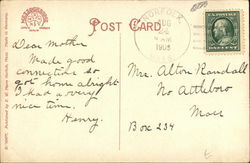 POST CARD
NORFOLK
AUG
1908
Dear Mother
Made good
connections so
got home alright
I had a very
nice time.
Henry.
Mrs. Alton Randall
No Attleboro
Mass
Box 234